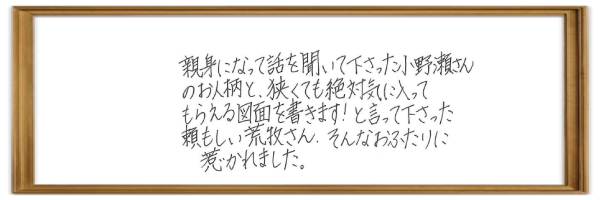 親身になって話を聞いて下さった小野瀬さん
のお人柄と、狭くても絶対気に入って
もらえる図面を書きます!と言って下さった
頼もしい荒牧さん、そんなおふたりに
惹かれました。